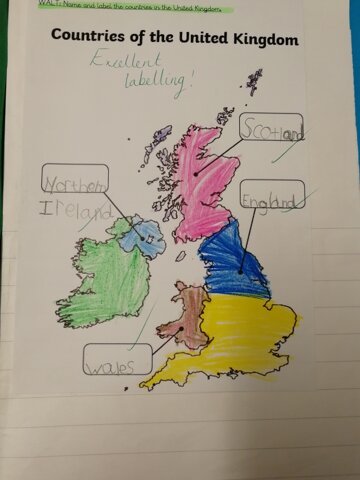 WALT: Name and label the countries in the United Kingdom.
Countries of the United Kingdom
Excellent
labelling!
Scotland
Northern
Ireland
England
Wales